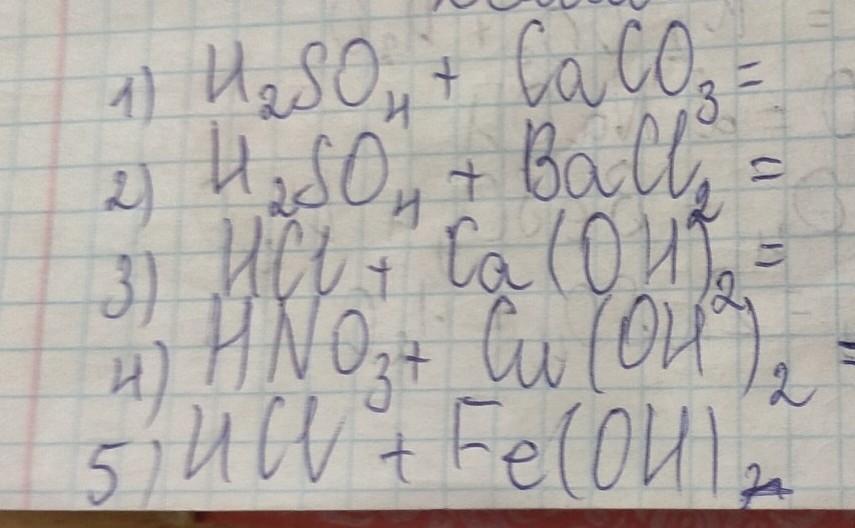 1) H₂SO₄ + CaCO₃ =
2) H₂SO₄ + BaCl₂ =
3) HCl + Ca(OH)₂ =
4) HNO₃ + Cu(OH)₂ =
5) HCl + Fe(OH)